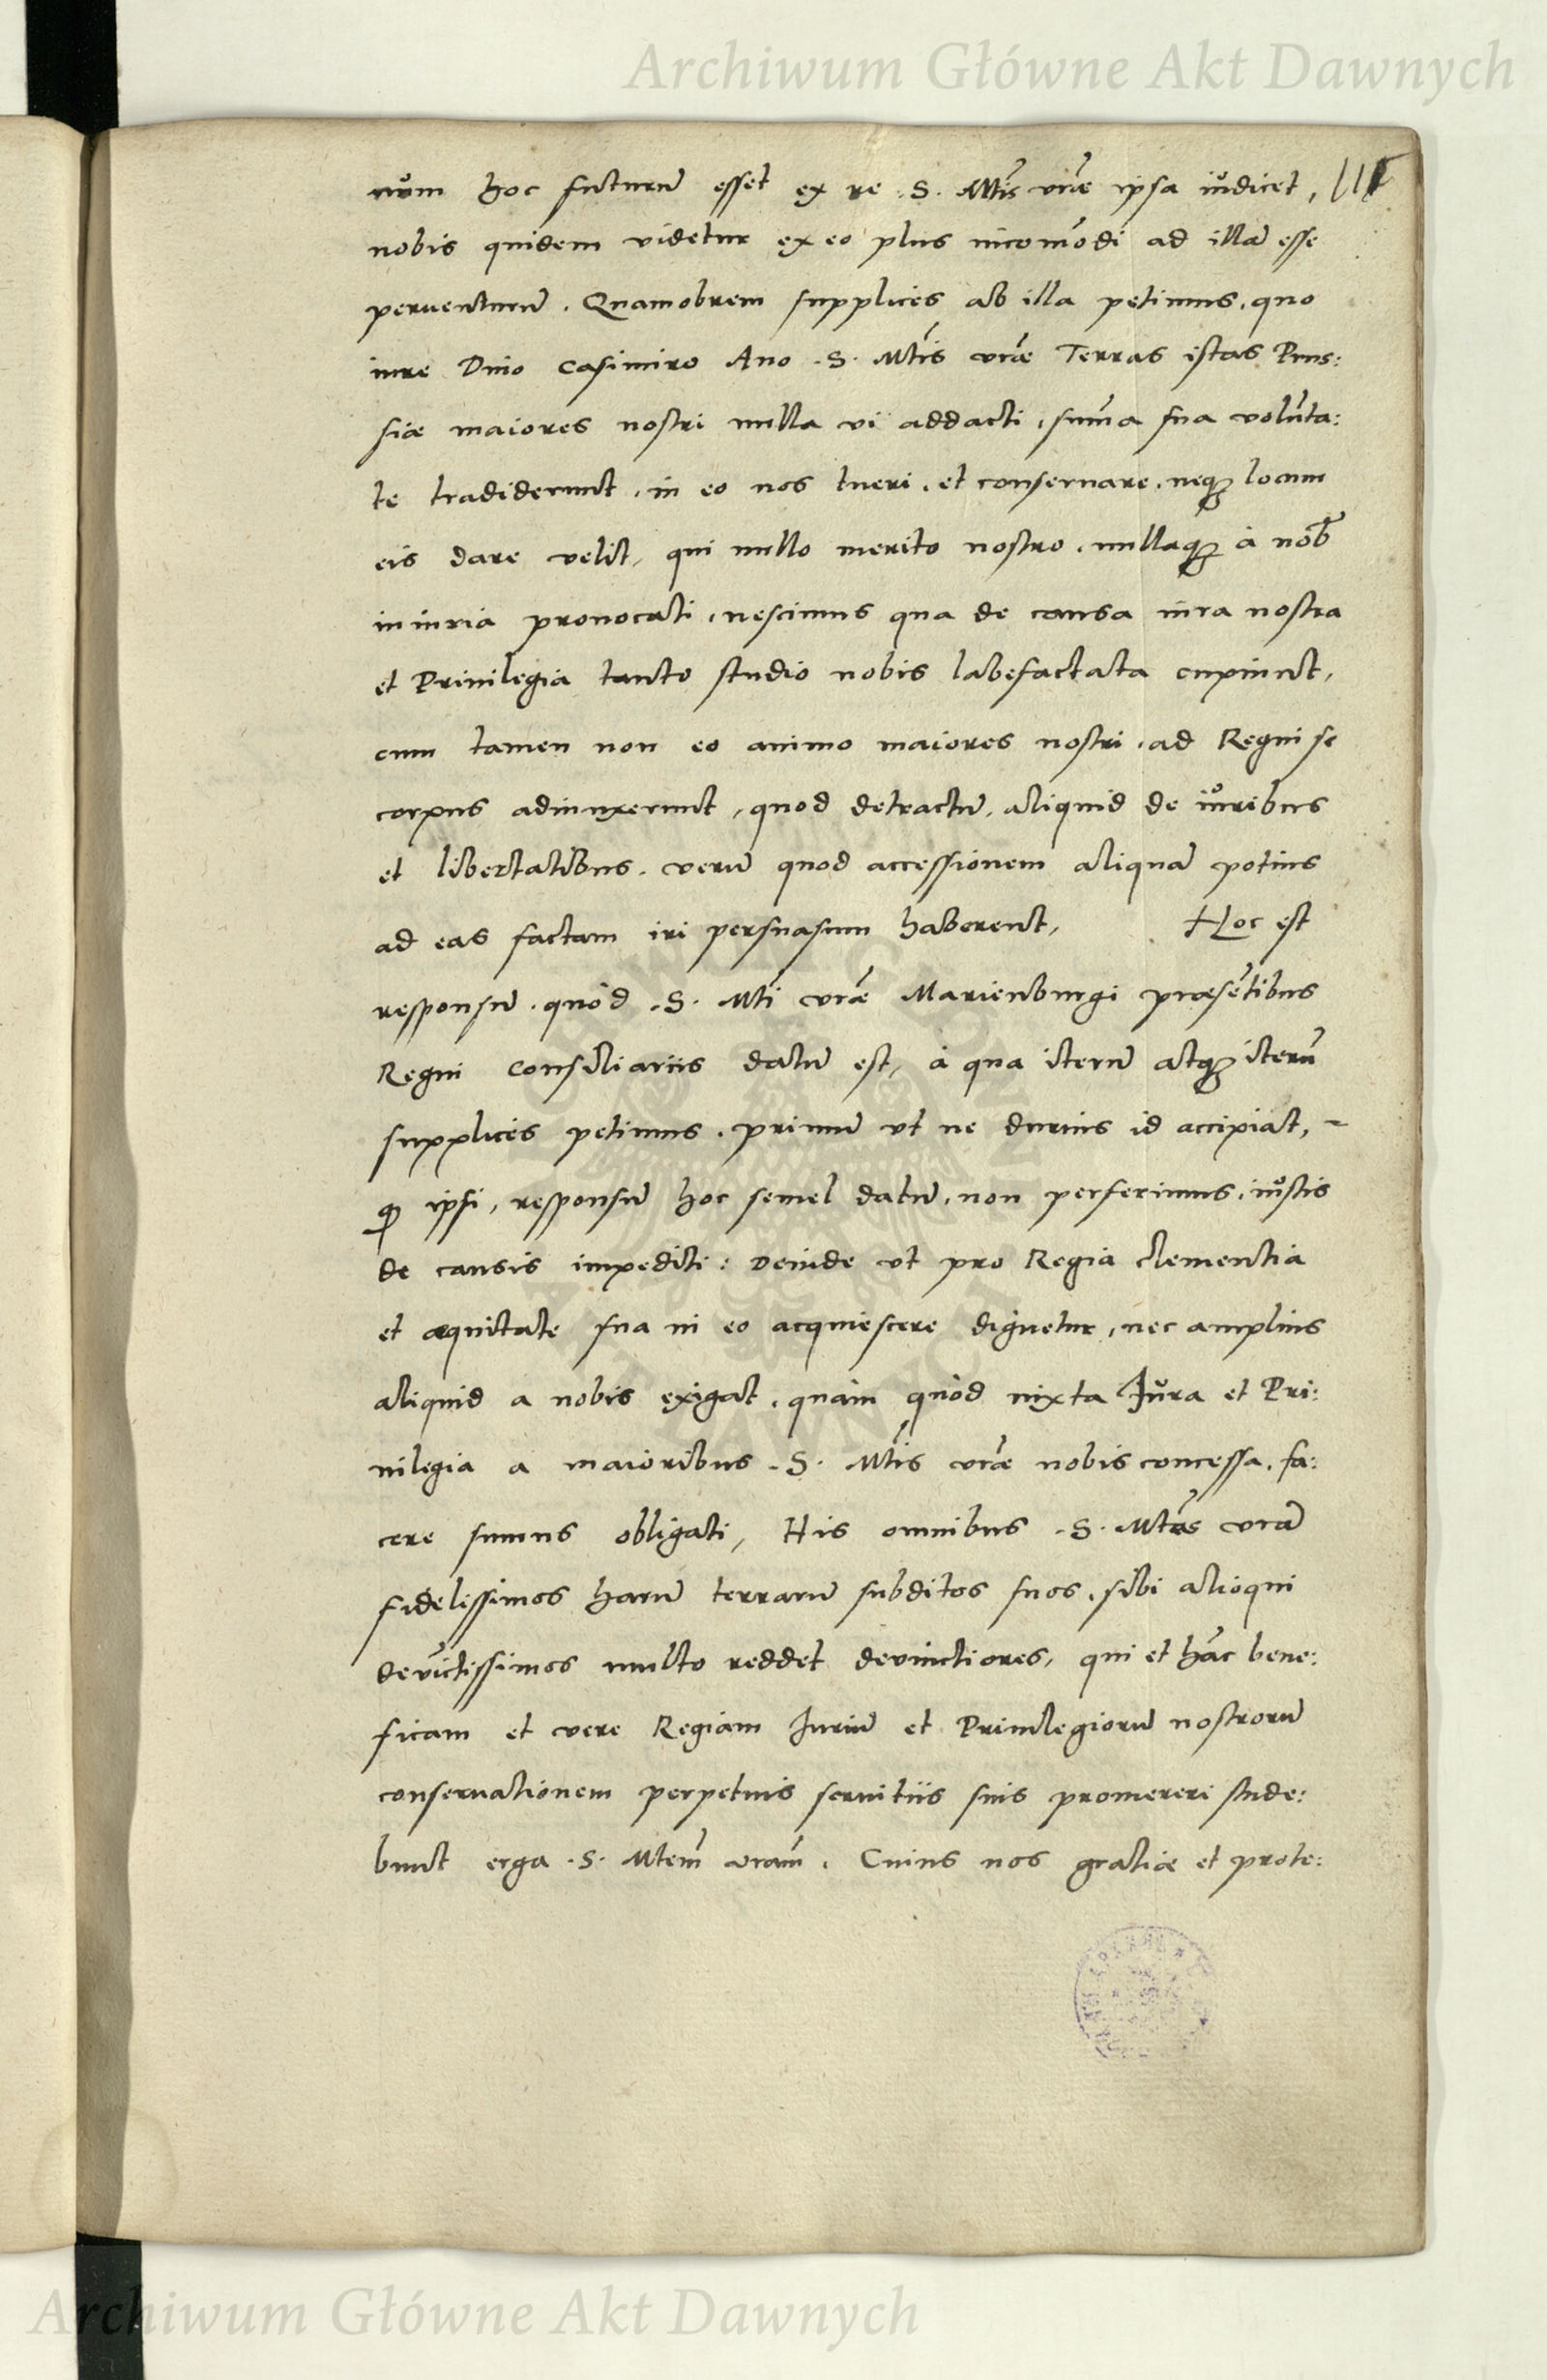 Archiwum Główne Akt Dawnych
num hoc futurū esset ex re .S. Mtis vrãe ipsa iudicet,
nobis quidem videtur ex eo plus incom̄odi ad illā esse
peruenturū. Quamobrem supplices ab illa petimus, quo
iure Dno Casimiro Auo .S. Mtis vrãe Terras istas Prus:
siæ maiores nostri nulla vi addacti, sum̄a sua volūta:
te tradiderunt, in eo nos tueri, et conseruare, neqꝫ locum
eis dare velit, qui nullo merito nostro, nullaqꝫ à nob̃
iniuria prouocati, nescimus qua de causa iura nostra
et Priuilegia tanto studio nobis labefactata cupiunt,
cum tamen non eo animo maiores nostri, ad Regni se
corpus adiunxerunt, quod detractū, aliquid de iuribus
et libertatibus, verū quod accessionem aliquā potius
ad eas factam iri persuasum haberent, Hoc est
responsū, quod .S. Mti vrãe Marienburgi præsētibus
Regni Consiliariis datū est, à qua iterū atqꝫ iterū
supplices petimus, primū vt ne durius id accipiat,
ꝙ ipsi, responsū hoc semel datū, non perferimus, iustis
de causis impediti: Deinde vt pro Regia clementia
et æquitate sua in eo acquiescere dignetur, nec amplius
aliquid a nobis exigat, quàm quòd iuxta Iura et Pri:
uilegia a maioribus .S. Mtis vrãe nobis concessa, fa:
cere sumus obligati, His omnibus .S. Mtas vrã
fidelissimos harū terrarū subditos suos, sibi alioqui
deuīctissimos multo reddet deuinctiores, qui et hāc bene:
ficam et vere Regiam Iuriū et Priuilegiorū nostrorū
conseruationem perpetuis seruitiis suis promereri stude:
bunt erga .S. Mtem vram̃. Cuius nos gratiæ et prote:
Archiwum Główne Akt Dawnych